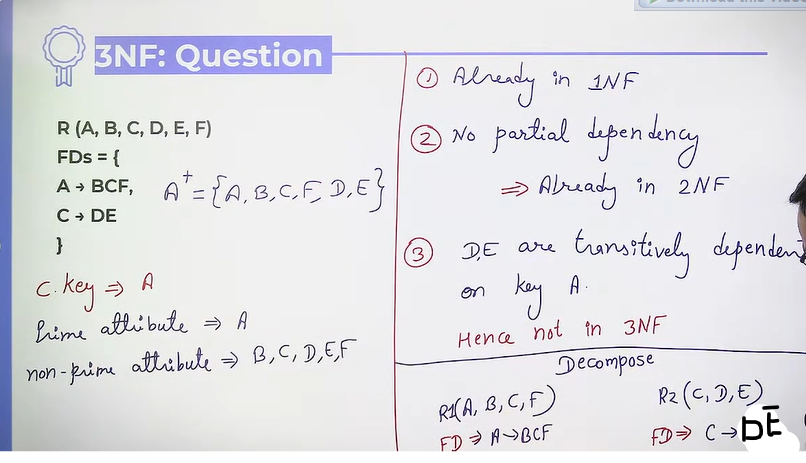 Download this video
3NF: Question
R (A, B, C, D, E, F)
FDs = {
A → BCF,
C → DE
}
A⁺ = {A, B, C, F, D, E}
C. Key ⇒ A
Prime attribute ⇒ A
non-prime attribute ⇒ B, C, D, E, F
① Already in 1NF
② No partial dependency
⇒ Already in 2NF
③ D,E are transitively dependent
on key A.
Hence not in 3NF
Decompose
R1(A, B, C, F)
FD ⇒ A→BCF
R2(C, D, E)
FD ⇒ C → DE